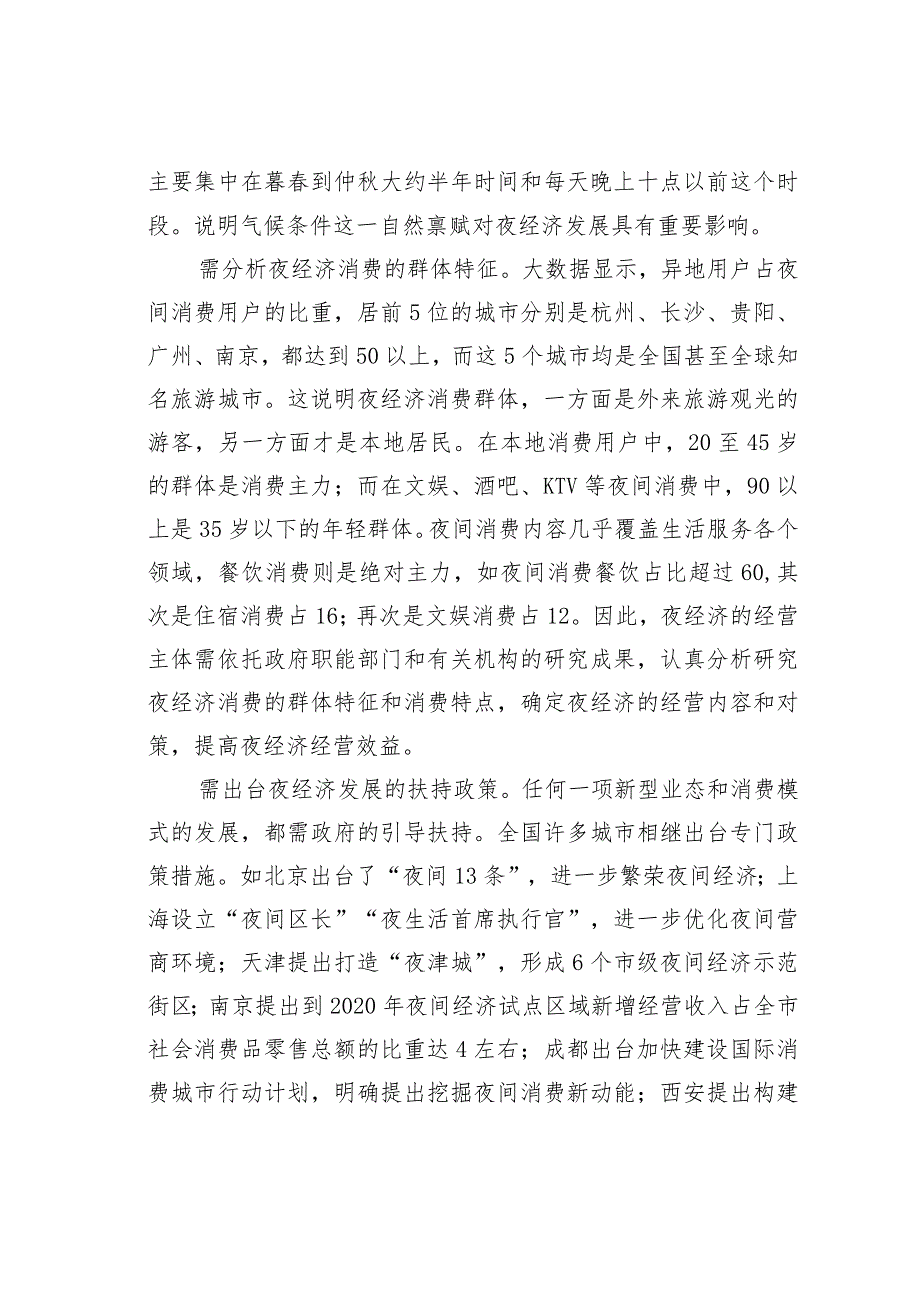 主要集中在暮春到仲秋大约半年时间和每天晚上十点以前这个时
段。说明气候条件这一自然禀赋对夜经济发展具有重要影响。
需分析夜经济消费的群体特征。大数据显示，异地用户占夜
间消费用户的比重，居前5位的城市分别是杭州、长沙、贵阳、
广州、南京，都达到50以上，而这5个城市均是全国甚至全球知
名旅游城市。这说明夜经济消费群体，一方面是外来旅游观光的
游客，另一方面才是本地居民。在本地消费用户中，20至45岁
的群体是消费主力；而在文娱、酒吧、KTV等夜间消费中，90以
上是35岁以下的年轻群体。夜间消费内容几乎覆盖生活服务各个
领域，餐饮消费则是绝对主力，如夜间消费餐饮占比超过60,其
次是住宿消费占16；再次是文娱消费占12。因此，夜经济的经营
主体需依托政府职能部门和有关机构的研究成果，认真分析研究
夜经济消费的群体特征和消费特点，确定夜经济的经营内容和对
策，提高夜经济经营效益。
需出台夜经济发展的扶持政策。任何一项新型业态和消费模
式的发展，都需政府的引导扶持。全国许多城市相继出台专门政
策措施。如北京出台了“夜间13条”，进一步繁荣夜间经济；上
海设立“夜间区长”“夜生活首席执行官”，进一步优化夜间营
商环境；天津提出打造“夜津城”，形成6个市级夜间经济示范
街区；南京提出到2020年夜间经济试点区域新增经营收入占全市
社会消费品零售总额的比重达4左右；成都出台加快建设国际消
费城市行动计划，明确提出挖掘夜间消费新动能；西安提出构建